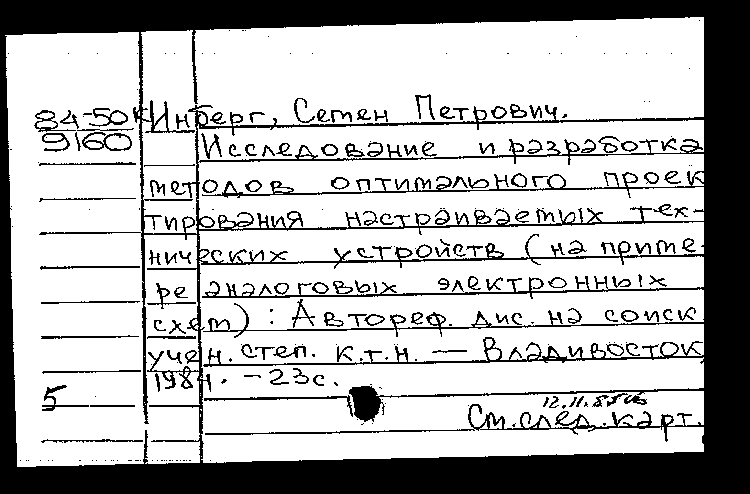 84-50к Инберг, Семен Петрович.
9160 Исследование и разработка
методов оптимального проек
тирования настраиваемых тех-
нических устройств (на приме-
ре аналоговых электронных
схем): Автореф. дис. на соиск
учен. степ. к.т.н. — Владивосток,
1984. - 23с.
5
12.11.85
См. след. карт.